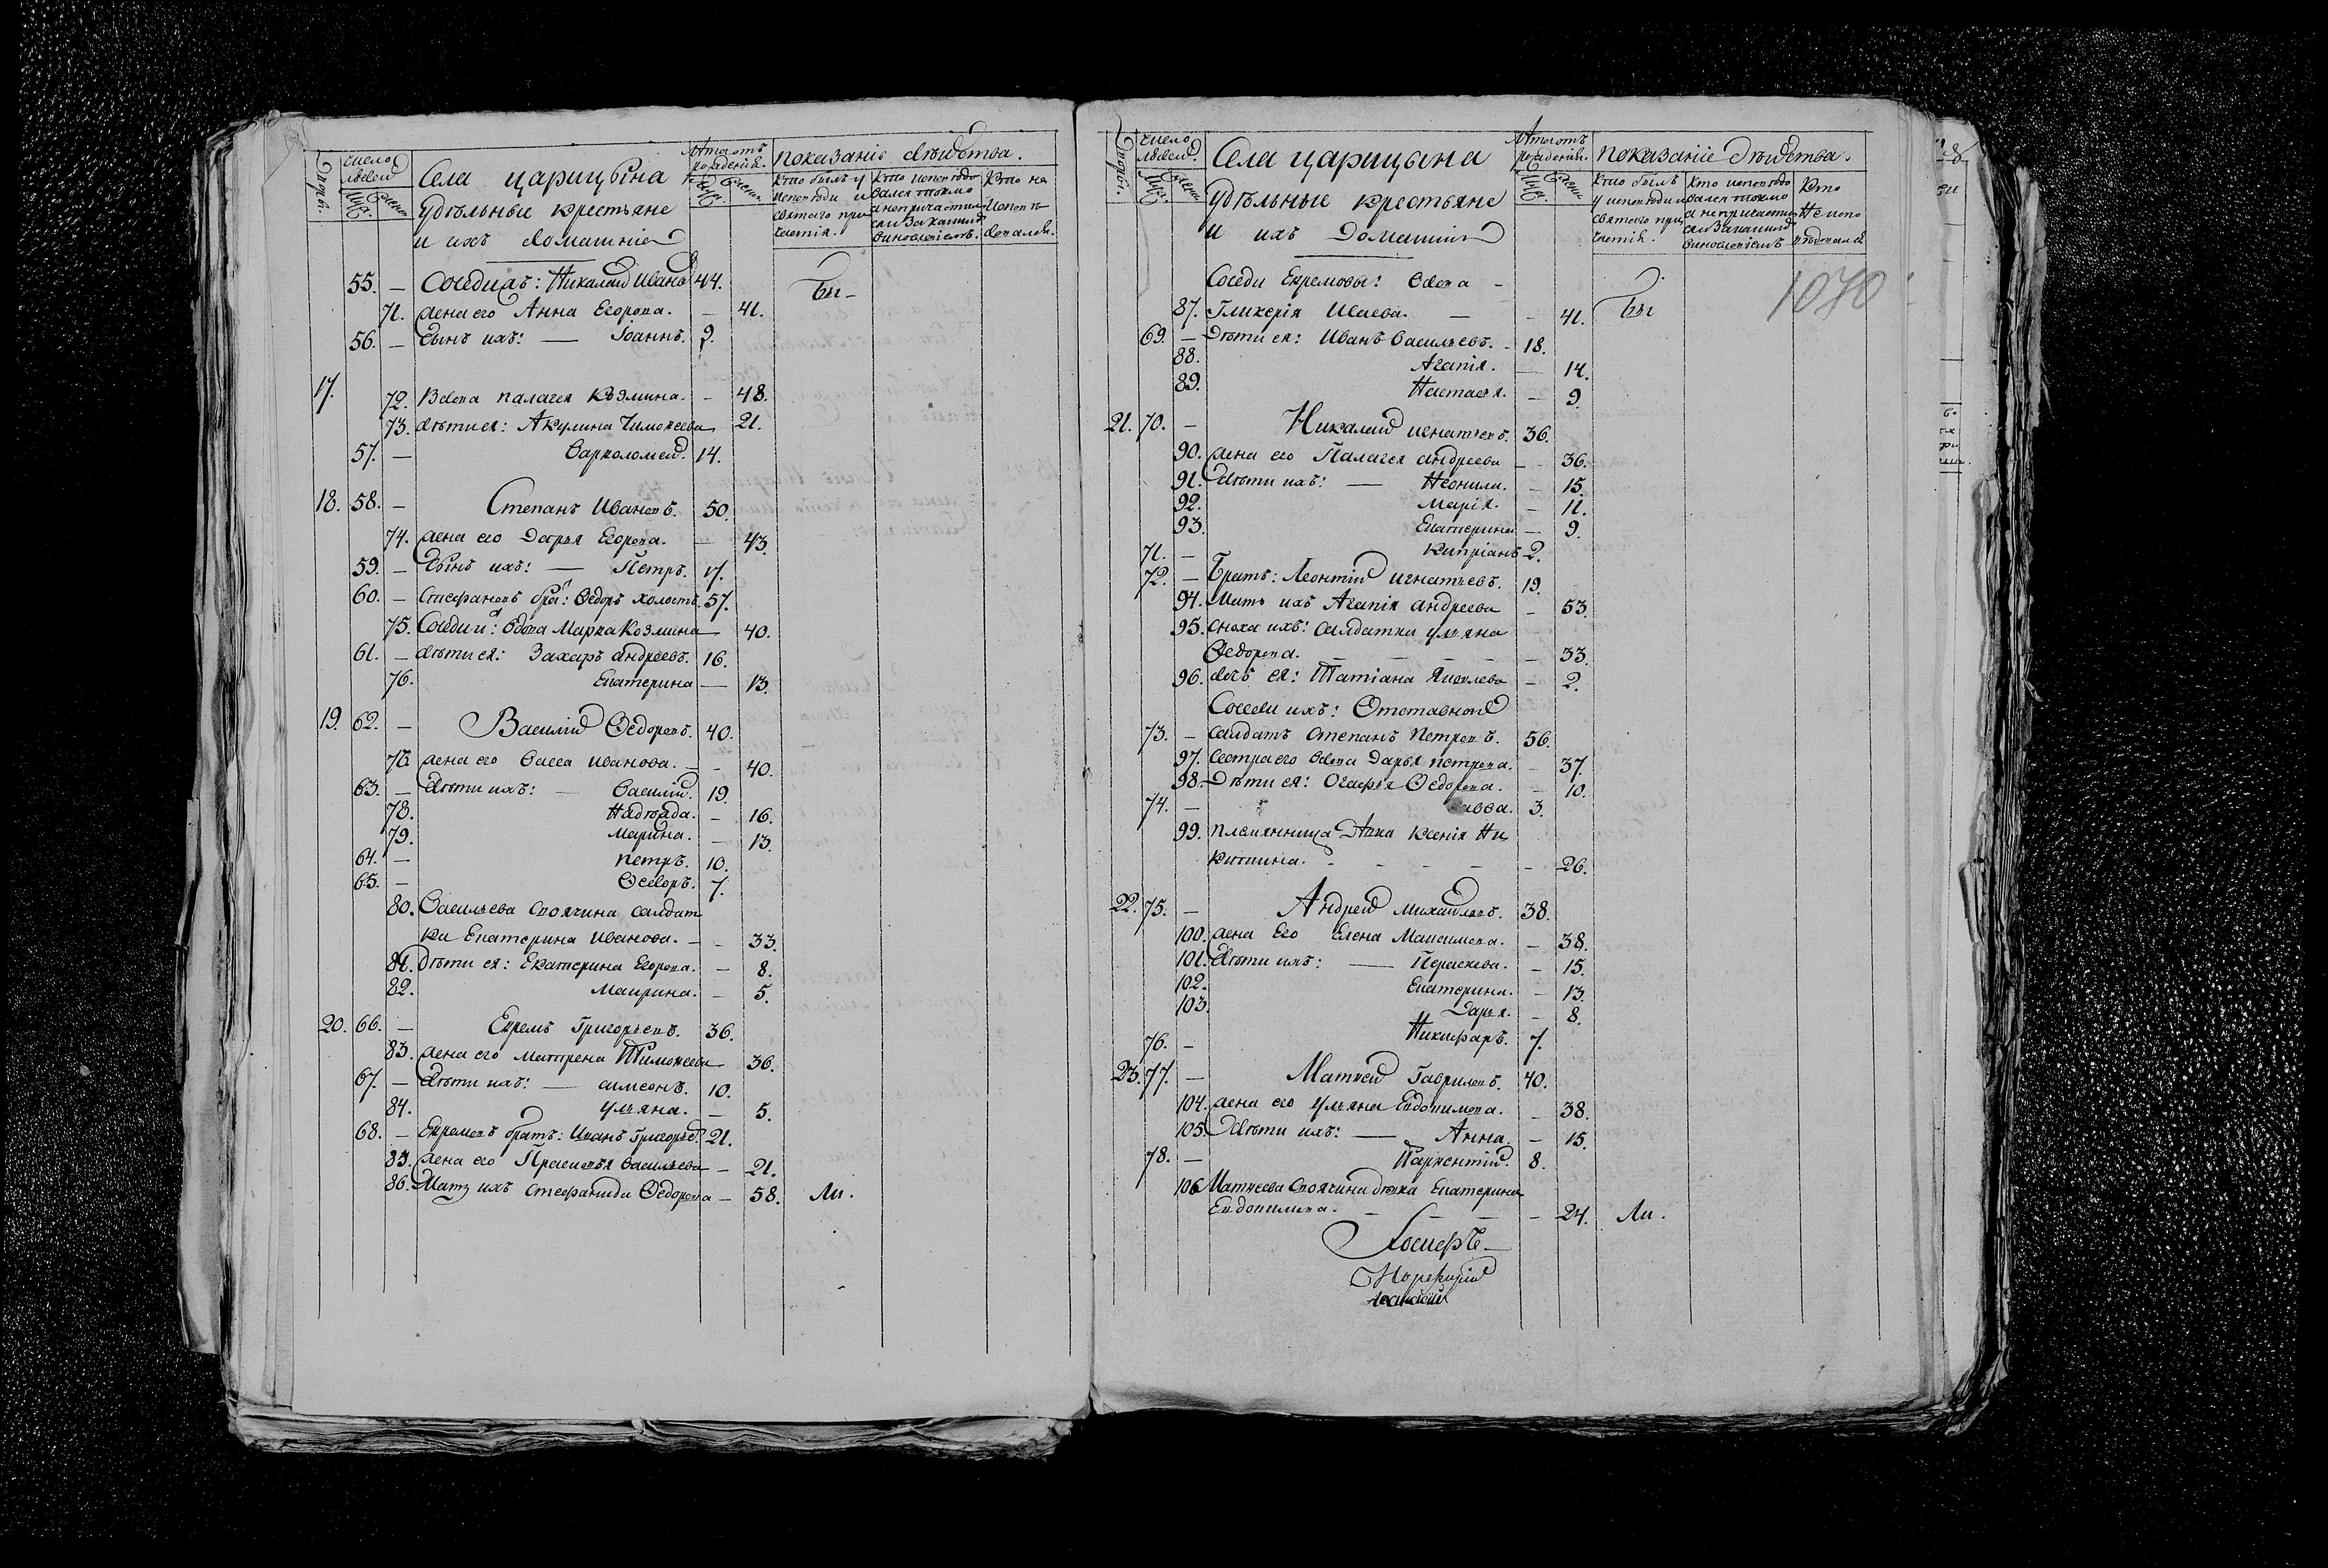 Число людей
Села царицына
Лѣта отъ рожденія.
показаніе дѣйства.
дворов.
Муж.
Женс.
удѣльные крестьяне
и ихъ домашніе
Муж.
Женс.
кто былъ у исповѣди и святаго причастія.
кто исповѣдовался токмо а непричастился и за какимъ виновлениемъ.
кто не исповѣдовался.
55. — Соседихъ: Николай Ивановъ 44. Бы-
71. жена его Анна Егорова. — 41.
56. — Сынъ ихъ: — Іоаннъ. 9.
17. 72. Вдова палагея Козмина. — 48.
73. дѣти ея: Акулина Тимоѳеева 21.
57. — Варѳоломей. 14.
18. 58. — Степанъ Ивановъ. 50.
74. жена его Дарья Егорова. — 43.
59. — Сынъ ихъ: — Петръ. 17.
60. — Стефановъ бра: Ѳедоръ холостъ. 57.
75. Соседи: вдова Марѳа Козмина 40.
61. — дѣти ея: Захаръ андреевъ. 16.
76. Екатерина — 13.
19. 62. — Василій Ѳедоровъ. 40.
76. жена его Васса иванова. — 40.
63. — Дѣти ихъ: — Василій. 19.
78. Надѣжда. — 16.
79. Марина. — 13.
64. — петръ. 10.
65. — Ѳедоръ. 7.
80. Васильева своячина салдат
ка Екатерина Иванова. — 33.
81. дѣти ея: Екатерина Егорова. — 8.
82. Маирина. — 5.
20. 66. — Ефремъ Григорьевъ. 36.
83. жена его матрена Тимоѳеева 36.
67. — Дѣти ихъ: — симеонъ. 10.
84. ульяна. — 5.
68. — Ефремовъ братъ: Иванъ Григорьев. 21.
85. жена его Прасковья васильева — 21.
86. Мать ихъ стефанида Ѳедорова — 58. Ли.
Число людей.
Села царицына
Лѣта отъ рожденія.
показаніе дѣйства.
дворов.
Муж.
Женс.
удѣльные крестьяне
и ихъ домашніи
Муж.
Женс.
кто былъ у исповѣди и святаго причастія.
кто исповѣдовался токмо а непричастился и за какимъ виновлениемъ
кто не исповѣдовался
1070
Соседи Ефремовы: вдова —
87. Гликерія Исаева. — 41. Бы
69. — Дѣти ея: Иванъ Васильевъ. 18.
88. Агапія. — 14.
89. Настасья. — 9.
21. 70. — Николай игнатьевъ. 36.
90. жена его Палагея андреева — 36.
91. Дѣти ихъ: — Неонила. — 15.
92. Марія. — 11.
93. Екатерина — 9.
71. — Кипріанъ 2.
72. — Братъ: Леонтій игнатьевъ. 19.
94. Мать ихъ Агапія андреева — 53.
95. сноха ихъ: салдатка ульяна
Ѳедорова. — 33.
96. дочь ея: Татіана Яковлева — 2.
Соседи ихъ: Отставной
73. — салдатъ степанъ петровъ. 56.
97. Сестра его вдова Дарья петрова. — 37.
98. Дѣти ея: Огафья Ѳедорова. — 10.
74. — авва. 3.
99. племянница Дѣвка ксенія Ни
китина. — 26.
22. 75. — Андрей михайловъ. 38.
100. жена Его Елена Максимова. — 38.
101. Дѣти ихъ: — Параскева. — 15.
102. Екатерина. — 13.
103. Дарья. — 8.
76. — Никифоръ. 7.
23. 77. — Матѳей Гавриловъ. 40.
104. жена его ульяна Евдокимова. — 38.
105. Дѣти ихъ: — Анна. — 15.
78. — Парѳентій. 8.
106. Матѳеева своячина дѣвка Екатерина
Евдокимова. — 24. Ли.